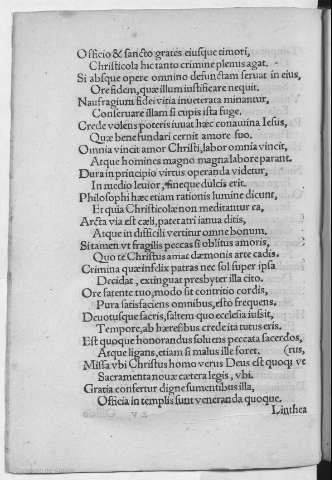 Officio & sancto grates eiusque timori,
Christicola hic tanto crimine plenus agat.
Si absque opere omnino defunctam seruat in eius,
Ore fidem, quæ illum iustificare nequit.
Naufragium fidei vitia inueterata minantur,
Conseruare illam si cupis ista fuge.
Crede volens poteris iuuat hæc conauina Iesus,
Quæ bene fundari cernit amore suo.
Omnia vincit amor Christi, labor omnia vincit,
Atque homines magno magna labore parant.
Dura in principio virtus operanda videtur,
In medio leuior, fineque dulcis erit.
Philosophi hæc etiam rationis lumine dicunt,
Et quia Christicolæ non meditantur ea,
Arcta via est cæli, patet atri ianua ditis,
Atque in difficili vertitur omne bonum.
Si tamen vt fragilis peccas si oblitus amoris,
Quo te Christus amat dæmonis arte cadis.
Crimina quæ infelix patras nec sol super ipsa
Decidat, extinguat presbyter illa cito.
Ore fatente tuo, modo sit contritio cordis,
Pura satisfaciens omnibus, esto frequens.
Deuotusque sacris, saltem quo ecclesia iussit,
Tempore, ab hæresibus crede ita tutus eris.
Est quoque honorandus soluens peccata sacerdos,
Atque ligans, etiam si malus ille foret. (rus,
Missa vbi Christus homo verus Deus est quoque ve
Sacramenta nouæ cætera legis, vbi.
Gratia confertur digne sumentibus illa,
Officia in templis sunt veneranda quoque.
Linthea